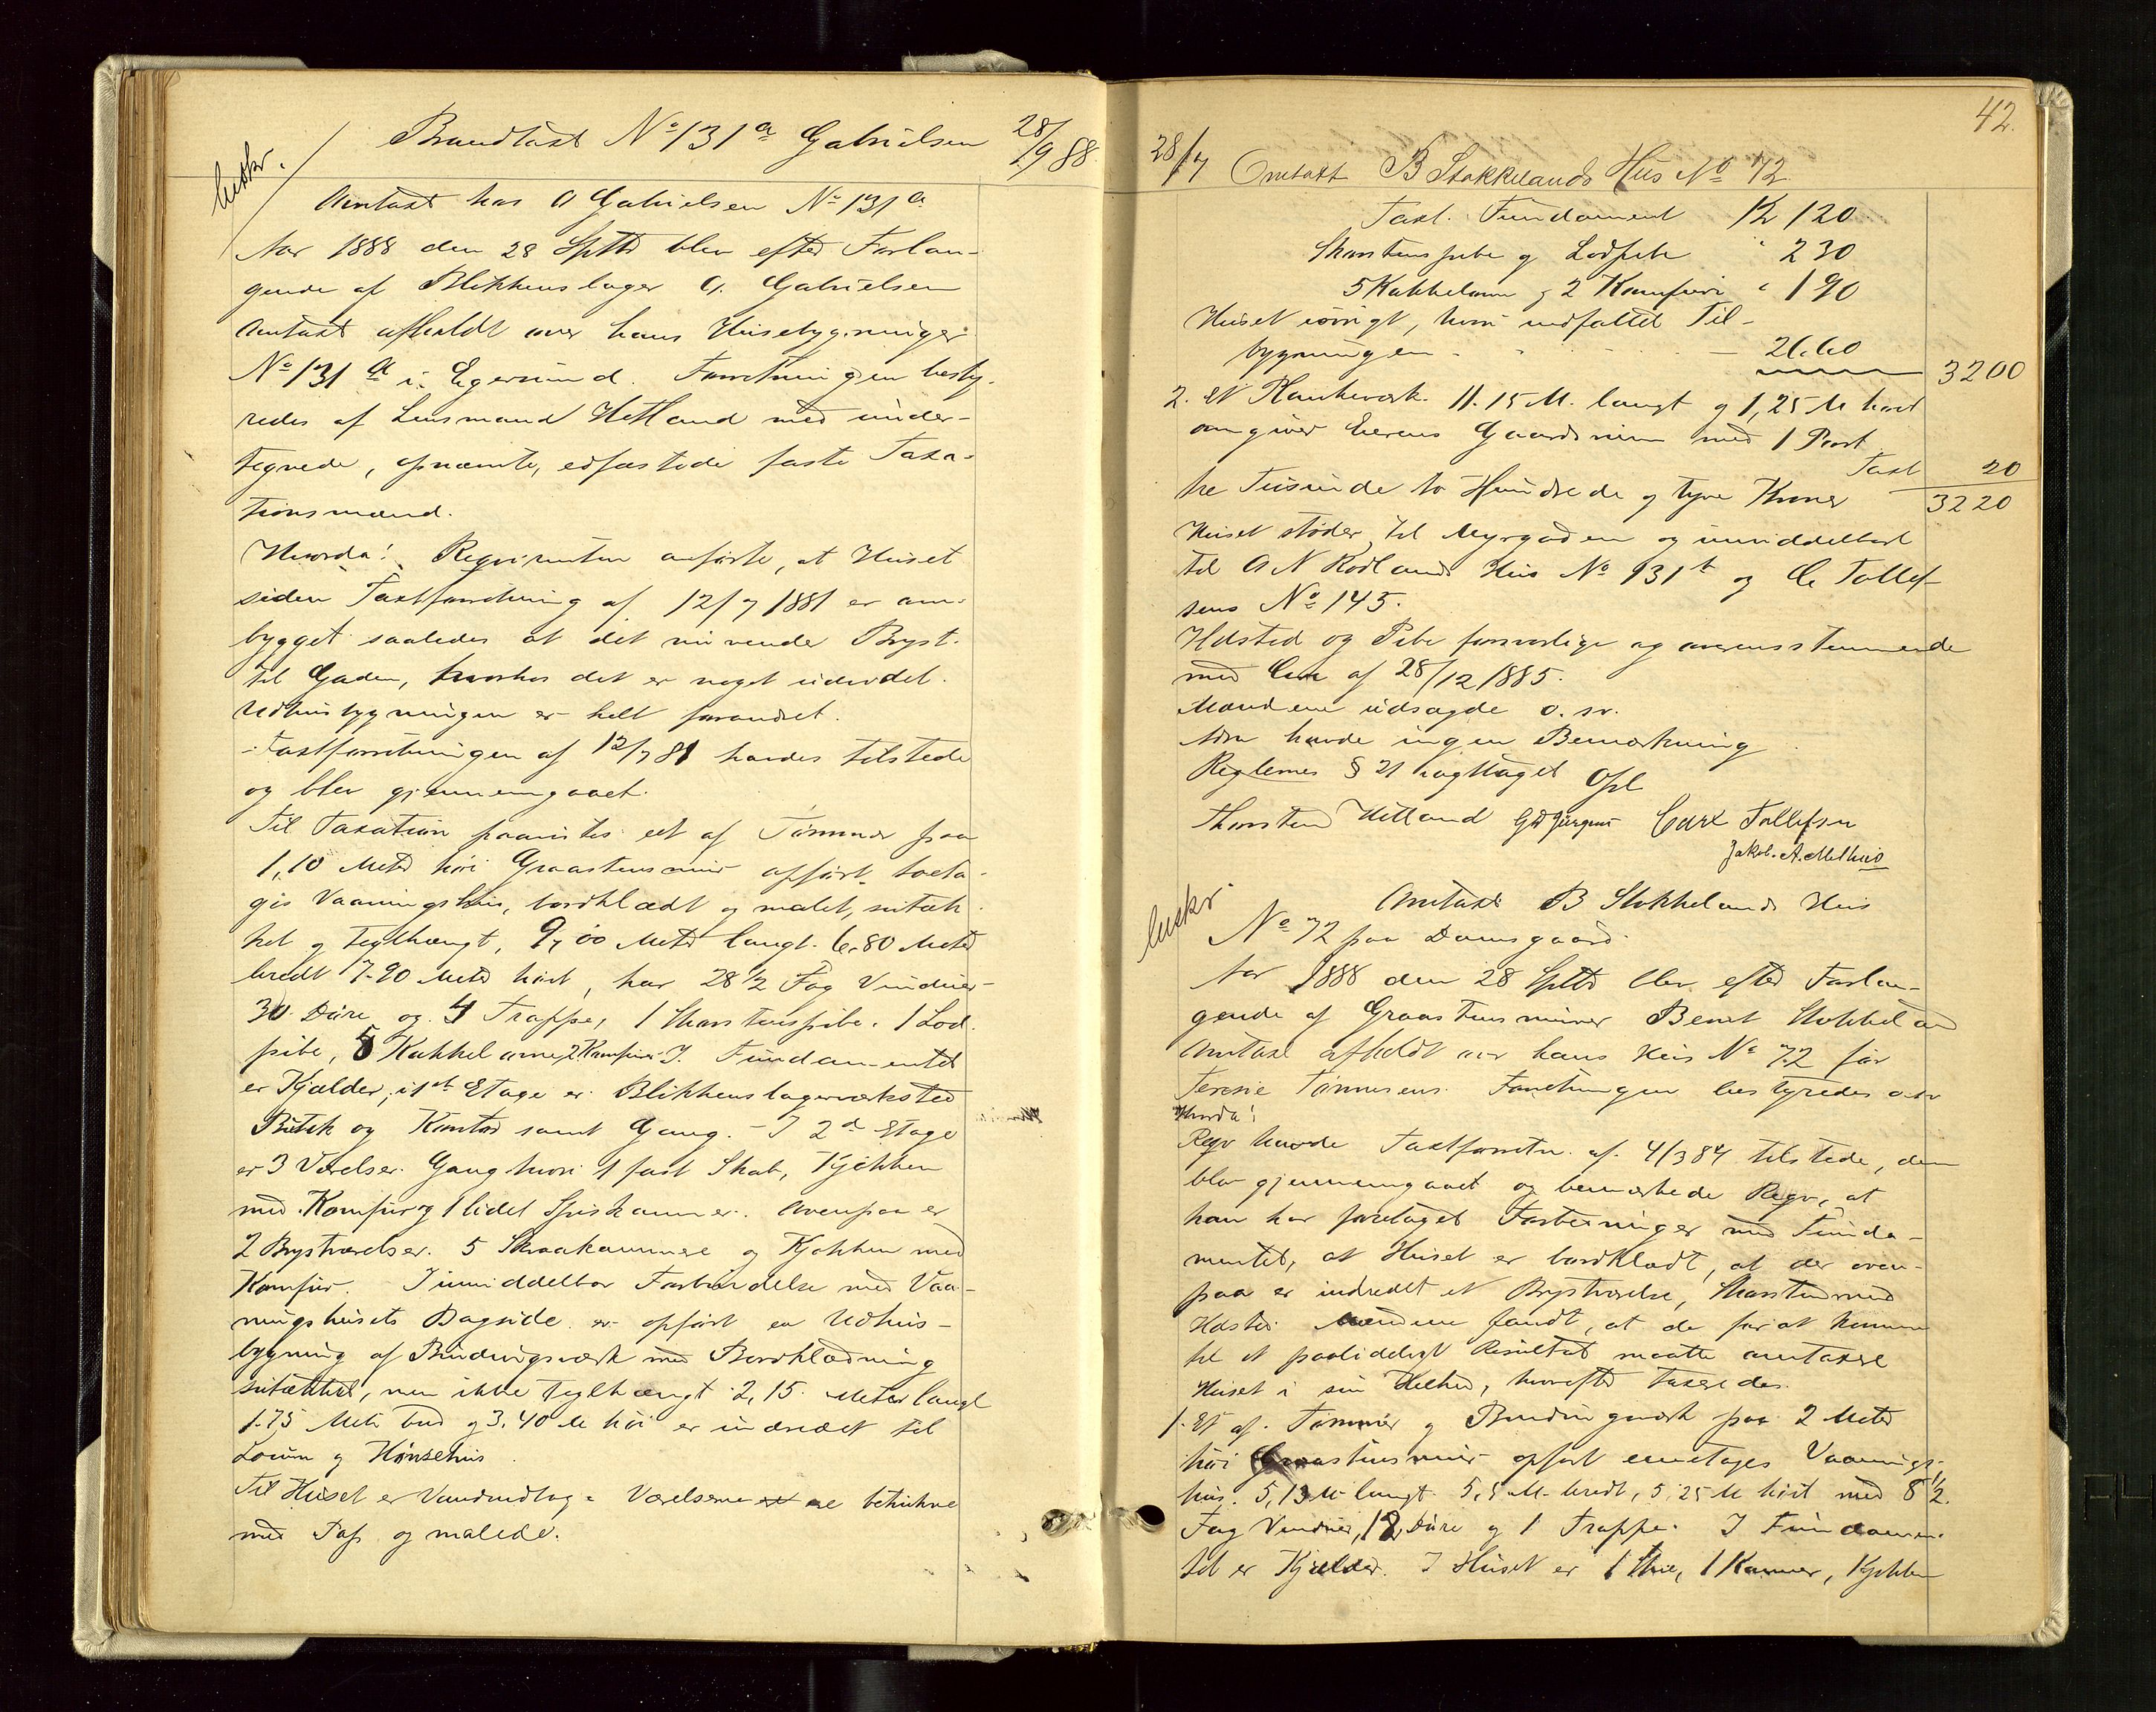 Brandtaxt No 131 a Gabrielsen 28/9 88.
Omtaxt hos A Gabrielsen No 131 a
Aar 1888 den 28 Septbr blev efter Forlan-
gende af Blikkenslager A. Gabrielsen
Omtaxt afholdt over hans Husebygninger
No 131 a i Egersund. Forretningen besty-
redes af Lensmand Hetland med under-
tegnede, opnævnte, edfæstede faste Taxa-
tionsmænd.
Hvorda! Reqvirenten anførte, at Huset
siden Taxtforretning af 12/7 1881 er om-
bygget saaledes at det nu vender Bryst
til Gaden, hvorhos det er noget udvidet.
Udhusbygningen er helt forandret.
Taxtforretningen af 12/7 81 havdes tilstede
og blev gjennemgaaet.
Til Taxation paavistes et af Tømmer paa
1,10 Meter høi Graastensmur opført toeta-
ges Vaaningshus, bordklædt og malet, sutæk-
ket og teglhængt, 9,00 Meter langt 6,80 Meter
bredt 7.90 Meter høit, har 28 1/2 Fag Vinduer
30 Døre og 4 Trappe, 1 Skorstenspibe, 1 Lod-
pibe, 5 Kakkelovne, 2 Komfur. I Fundamentet
er Kjælder, i 1st Etage er Blikkenslagerværksted
Butik og Kontor samt Gang. I 2d Etage
er 3 Værelser. Gang hvori 1 fast Skab, Kjøkken
med Komfur og 1 lidet Spiskammer. Ovenpaa er
2 Brystværelser. 5 Skraakammere og Kjøkken med
Komfur. I umiddelbar Forbindelse med Vaa-
ningshusets Bagside er opført en Udhus-
bygning af Bindingsværk med Bordklædning
sutækket, men ikke teglhængt 2,15 Meter langt
1.75 Meter bred og 3,40 M høi er indredet til
Locum og Hønsehus.
Til Huset er Vandindlag. Værelserne er betrukne
med Tap og malede.
42.
28/7 Omtaxt B Stokkelands Hus No 72
Taxt. Fundament Kr 120
Skorstenspibe og Lodpibe " 230
5 Kakkelovne og 2 Komfurer " 190
Huset iøvrigt, hvori indfattet Til-
bygningen 2660
3200
2. Et Plankeværk 11.15 M. langt og 1,25 M høit
omgiver Eierens Gaardsrum med 1 Port
Taxt 20
tre Tusinde to Hundrede og tyve Kroner 3220
Huset støder til Myrgaden og umiddelbart
til A N Rødlands Hus No 131 b og C Tollef-
sens No 145.
Ildsted og Pibe forsvarlige og overensstemmende
med Circ af 28/12 1885.
Mændene udsagde o. sv.
havde ingen Bemærkning
Reglemes § 21 iagttaget Opl
Thorsten Hetland Carl Tollefsen
Jakob. A. Melhus
Omtaxt B Stokkelands Hus
No 72 paa Damsgaard.
Aar 1888 den 28 Septbr blev efter Forlan-
gende af Graastensmurer Berent Stokkeland
Omtaxt afholdt over hans Hus No 72 før
Teresie Tønnesens. Forretningen bestyredes osv
Hvorda!
Reqv havde Taxtforretn. af 4/3 84 tilstede, den
blev gjennemgaaet og bemærkede Reqv, at
han har foretaget Forbedringer med Funda-
mentet, at Huset er bordklædt, at der oven-
paa er indredet et Brystværelse, Skorsten med
Ildsted. Mændene fandt, at de for at komme
til et paalideligt Resultat maatte omtaxere
Huset i sin Helhed, hvorefter taxeredes.
1. Et af Tømmer og Bindingsværk paa 2 Meter
høi Graastensmur opført eenetages Vaanings-
hus. 5,13 M langt 5,5 M. bredt, 5,25 M høit med 8 1/2
Fag Vinduer, 12 Døre og 1 Trappe. I Fundamen-
tet er Kjælder. I Huset er 1 Stue, 1 Kammer, Kjøkken